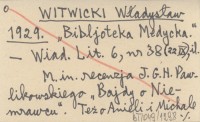 WITWICKI Władysław
1929. „Bibljoteka Medycka."
— Wiad. Lit. 6, nr 38 (22 IX) il.
M. in. recenzja J. G. H. Paw-
likowskiego „Bajdy o Nie-
mrawcu". Też o Anieli i Michale